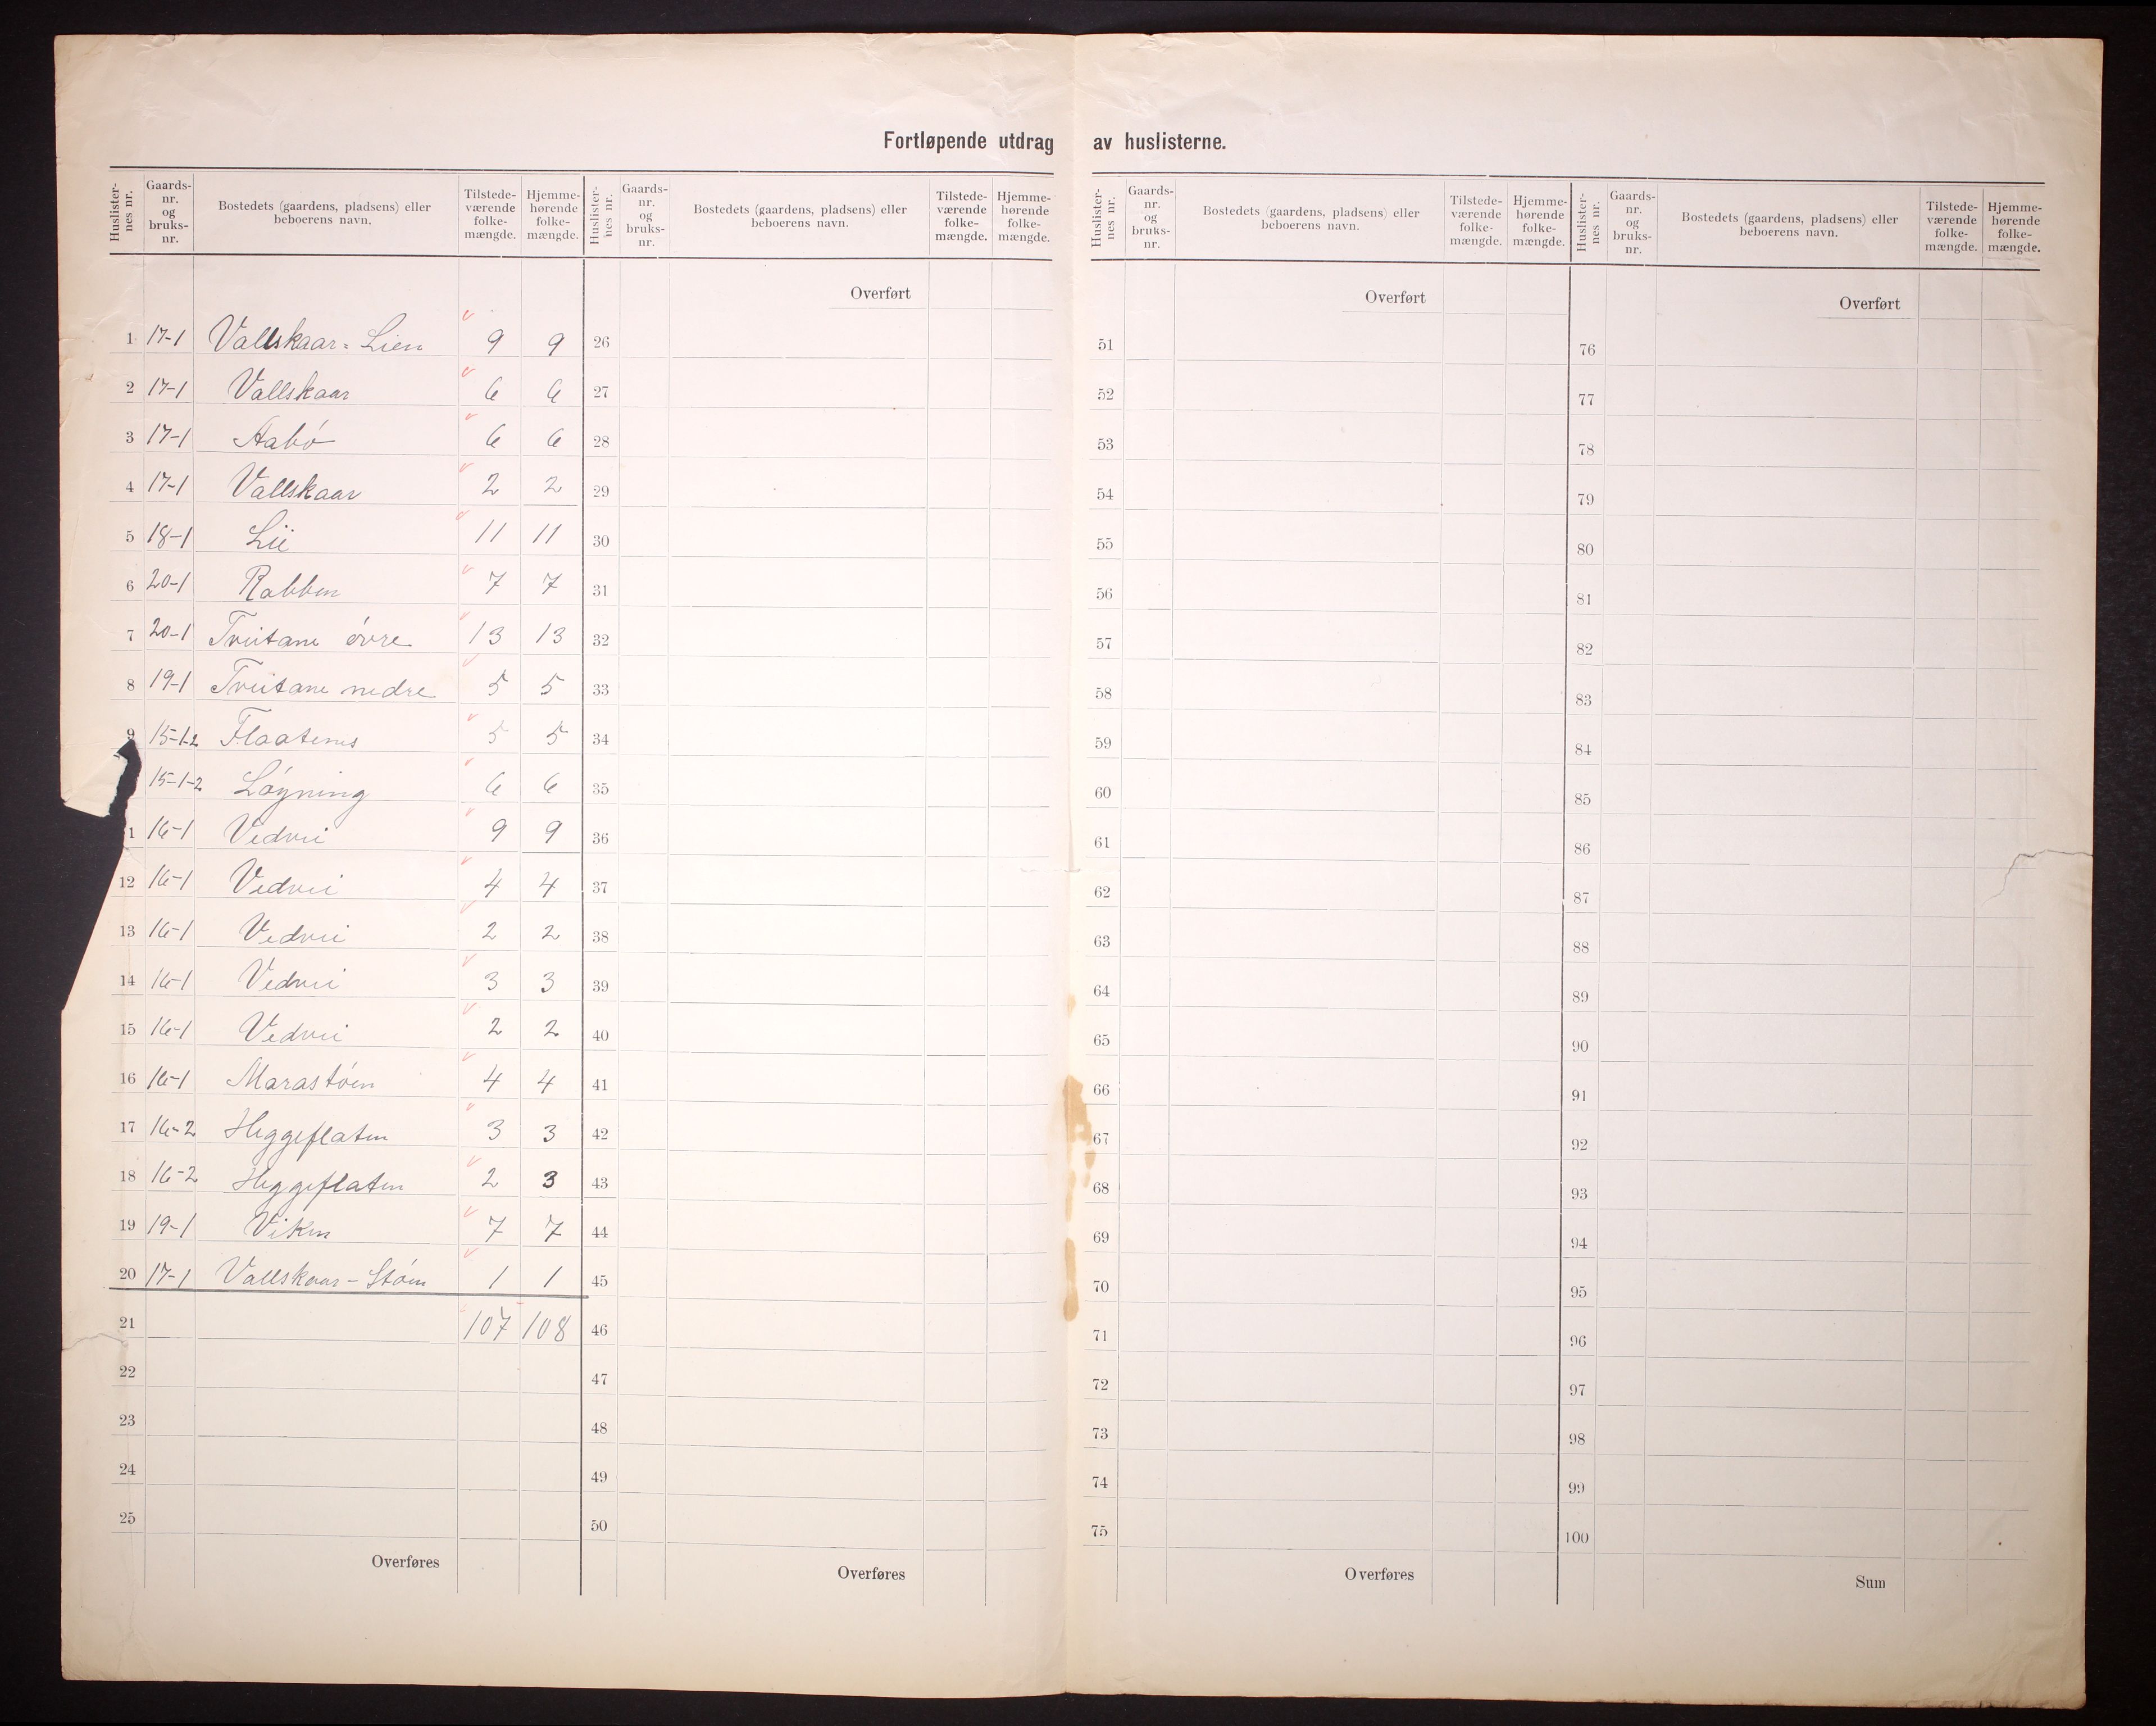 Fortløpende utdrag av huslisterne.
Huslisternes nr. | Gaards-nr. og bruks-nr. | Bostedets (gaardens, pladsens) eller beboerens navn. | Tilstedeværende folkemængde. | Hjemmehørende folkemængde.
Huslisternes nr. | Gaards-nr. og bruks-nr. | Bostedets (gaardens, pladsens) eller beboerens navn. | Tilstedeværende folkemængde. | Hjemmehørende folkemængde.
Huslisternes nr. | Gaards-nr. og bruks-nr. | Bostedets (gaardens, pladsens) eller beboerens navn. | Tilstedeværende folkemængde. | Hjemmehørende folkemængde.
Huslisternes nr. | Gaards-nr. og bruks-nr. | Bostedets (gaardens, pladsens) eller beboerens navn. | Tilstedeværende folkemængde. | Hjemmehørende folkemængde.
1 17-1 Vallskaar-Lien 9 9
2 17-1 Vallskaar 6 6
3 17-1 Aabö 6 6
4 17-1 Vallskaar 2 2
5 18-1 Lii 11 11
6 20-1 Rabben 7 7
7 20-1 Tveitane övre 13 13
8 19-1 Tveitane nedre 5 5
9 15-1-2 Flaatenes 5 5
15-1-2 Löyning 6 6
1 16-1 Vedvii 9 9
12 16-1 Vedvii 4 4
13 16-1 Vedvii 2 2
14 16-1 Vedvii 3 3
15 16-1 Vedvii 2 2
16 16-1 Marastöen 4 4
17 16-2 Heggeflaten 3 3
18 16-2 Heggeflaten 2 3
19 19-1 Viken 7 7
20 17-1 Vallskaar-Stöen 1 1
21 107 108
22
23
24
25
Overføres
Overført
26
27
28
29
30
31
32
33
34
35
36
37
38
39
40
41
42
43
44
45
46
47
48
49
50
Overføres
Overført
51
52
53
54
55
56
57
58
59
60
61
62
63
64
65
66
67
68
69
70
71
72
73
74
75
Overføres
Overført
76
77
78
79
80
81
82
83
84
85
86
87
88
89
90
91
92
93
94
95
96
97
98
99
100
Sum